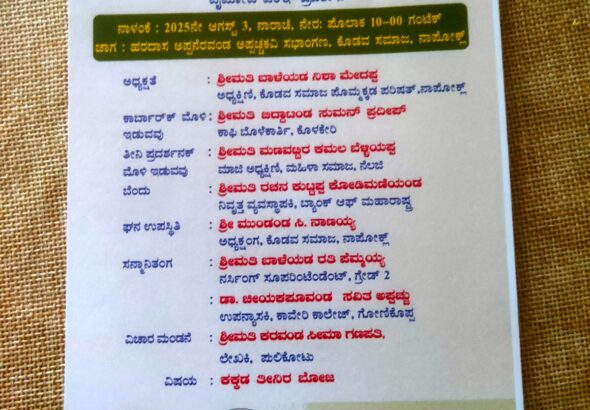 ನಾಳಂಕೆ : 2025ನೇ ಆಗಸ್ಟ್ 3, ನಾರಾಚೆ, ನೇರ: ಪೊಲಾಕ 10-00 ಗಂಟೆಕ್
ಜಾಗ : ಹರದಾಸ ಅಪ್ಪನೆರವಂಡ ಅಪ್ಪಚ್ಚಕವಿ ಸಭಾಂಗಣ, ಕೊಡವ ಸಮಾಜ, ನಾಪೋಕ್ಲ್
ಅಧ್ಯಕ್ಷತೆ : ಶ್ರೀಮತಿ ಬಾಳೆಯಡ ನಿಶಾ ಮೇದಪ್ಪ
ಅಧ್ಯಕ್ಷಿಣಿ, ಕೊಡವ ಸಮಾಜ ಪೊಮ್ಮಕ್ಕಡ ಪರಿಷತ್, ನಾಪೋಕ್ಲ್
ಕಾರ್ಬಾರ್‌ಕ್ ಮೊಳಿ : ಶ್ರೀಮತಿ ಬದ್ದಾಟಂಡ ಸುಮನ್ ಪ್ರದೀಪ್
ಇಡುವವು ಕಾಫಿ ಬೊಳೆಕಾರ್ತಿ, ಕೊಳಕೇರಿ
ತೀನಿ ಪ್ರದರ್ಶನಕ್ : ಶ್ರೀಮತಿ ಮಣವಟ್ಟಿರ ಕಮಲ ಬೆಳ್ಯಪ್ಪ
ಮೊಳಿ ಇಡುವವು ಮಾಜಿ ಅಧ್ಯಕ್ಷಿಣಿ, ಮಹಿಳಾ ಸಮಾಜ, ನೆಲಜಿ
ಬೆಂದು : ಶ್ರೀಮತಿ ರಚನ ಕುಟ್ಟಪ್ಪ ಕೋಡಿಮಣಿಯಂಡ
ನಿವೃತ್ತ ವ್ಯವಸ್ಥಾಪಕಿ, ಬ್ಯಾಂಕ್ ಆಫ್ ಮಹಾರಾಷ್ಟ್ರ
ಘನ ಉಪಸ್ಥಿತಿ : ಶ್ರೀ ಮುಂಡಂಡ ಸಿ. ನಾಣಯ್ಯ
ಅಧ್ಯಕ್ಷಂಗ, ಕೊಡವ ಸಮಾಜ, ನಾಪೋಕ್ಲ್
ಸನ್ಮಾನಿತಂಗ : ಶ್ರೀಮತಿ ಬಾಳೆಯಡ ರತಿ ಪೆಮ್ಮಯ್ಯ
ನರ್ಸಿಂಗ್ ಸೂಪರಿಂಟೆಂಡೆಂಟ್, ಗ್ರೇಡ್ 2
: ಡಾ. ಚೀಯಕಪೂವಂಡ ಸವಿತ ಅಪ್ಪಚ್ಚು
ಉಪನ್ಯಾಸಕಿ, ಕಾವೇರಿ ಕಾಲೇಜ್, ಗೋಣಿಕೊಪ್ಪ
ವಿಚಾರ ಮಂಡನೆ : ಶ್ರೀಮತಿ ಕರವಂಡ ಸೀಮಾ ಗಣಪತಿ,
ಲೇಖಕಿ, ಪುಲಿಕೋಟು
ವಿಷಯ : ಕಕ್ಕಡ ತೀನಿರ ಬೋಜ